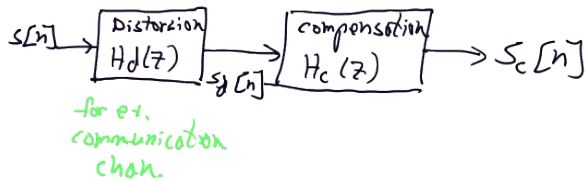 s[n]
Distorsion
Hd(z)
sd[n]
compensation
Hc(z)
Sc[n]
for ex.
communication
chan.